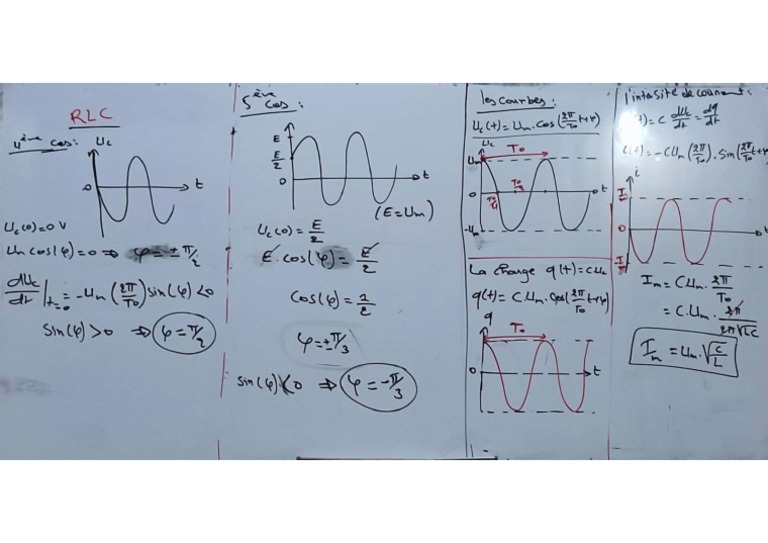 RLC
4ème cas:
Uc
0
t
Uc(0)=0V
Um cos(φ)=0 ⇒ φ=±π/2
dUc/dt|t=0 = -Um(2π/T0)sin(φ)<0
sin(φ)>0 ⇒ φ=π/2
5ème cas:
E
E/2
0
t
(E=Um)
Uc(0)=E/2
E.cos(φ)=E/2
φ=±π/3
sin(φ)<0 ⇒ φ=-π/3
les courbes:
Uc(t)=Um.cos(2π/T0 t+φ)
Uc
Um
T0
0
t
-Um
La charge q(t)=CUc
q(t)=C.Um.cos(2π/T0 t+φ)
q
T0
0
t
l'intensité de courant:
i(t)=C dUc/dt=dq/dt
i(t)=-CUm(2π/T0).sin(2π/T0 t+φ)
i
0
t
Im=C.Um.2π/T0
=C.Um.2π/2π√LC
Im=Um.√C/L